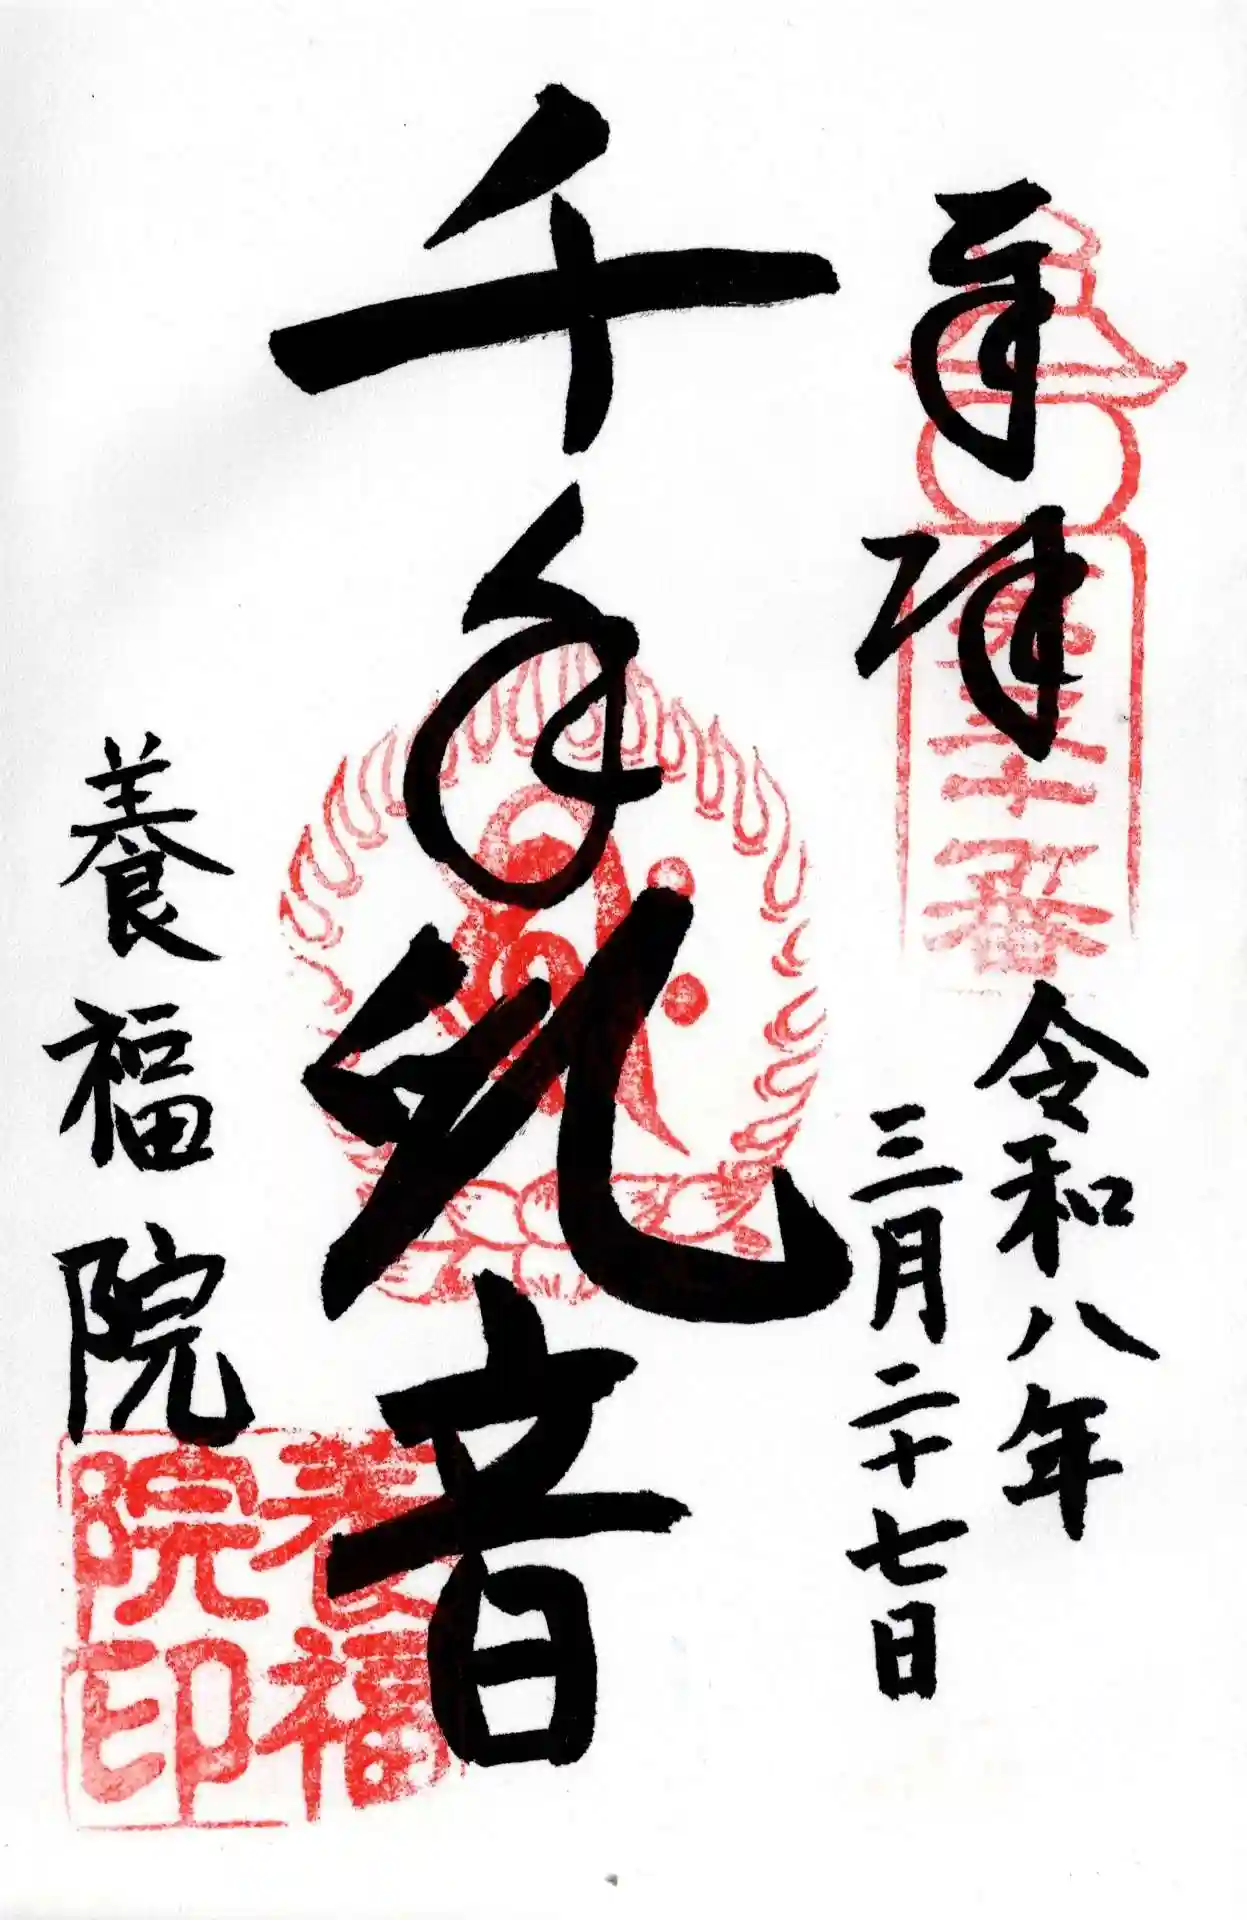 奉拝
第三十番
令和八年
三月二十七日
千手観音
養福院
養福院印